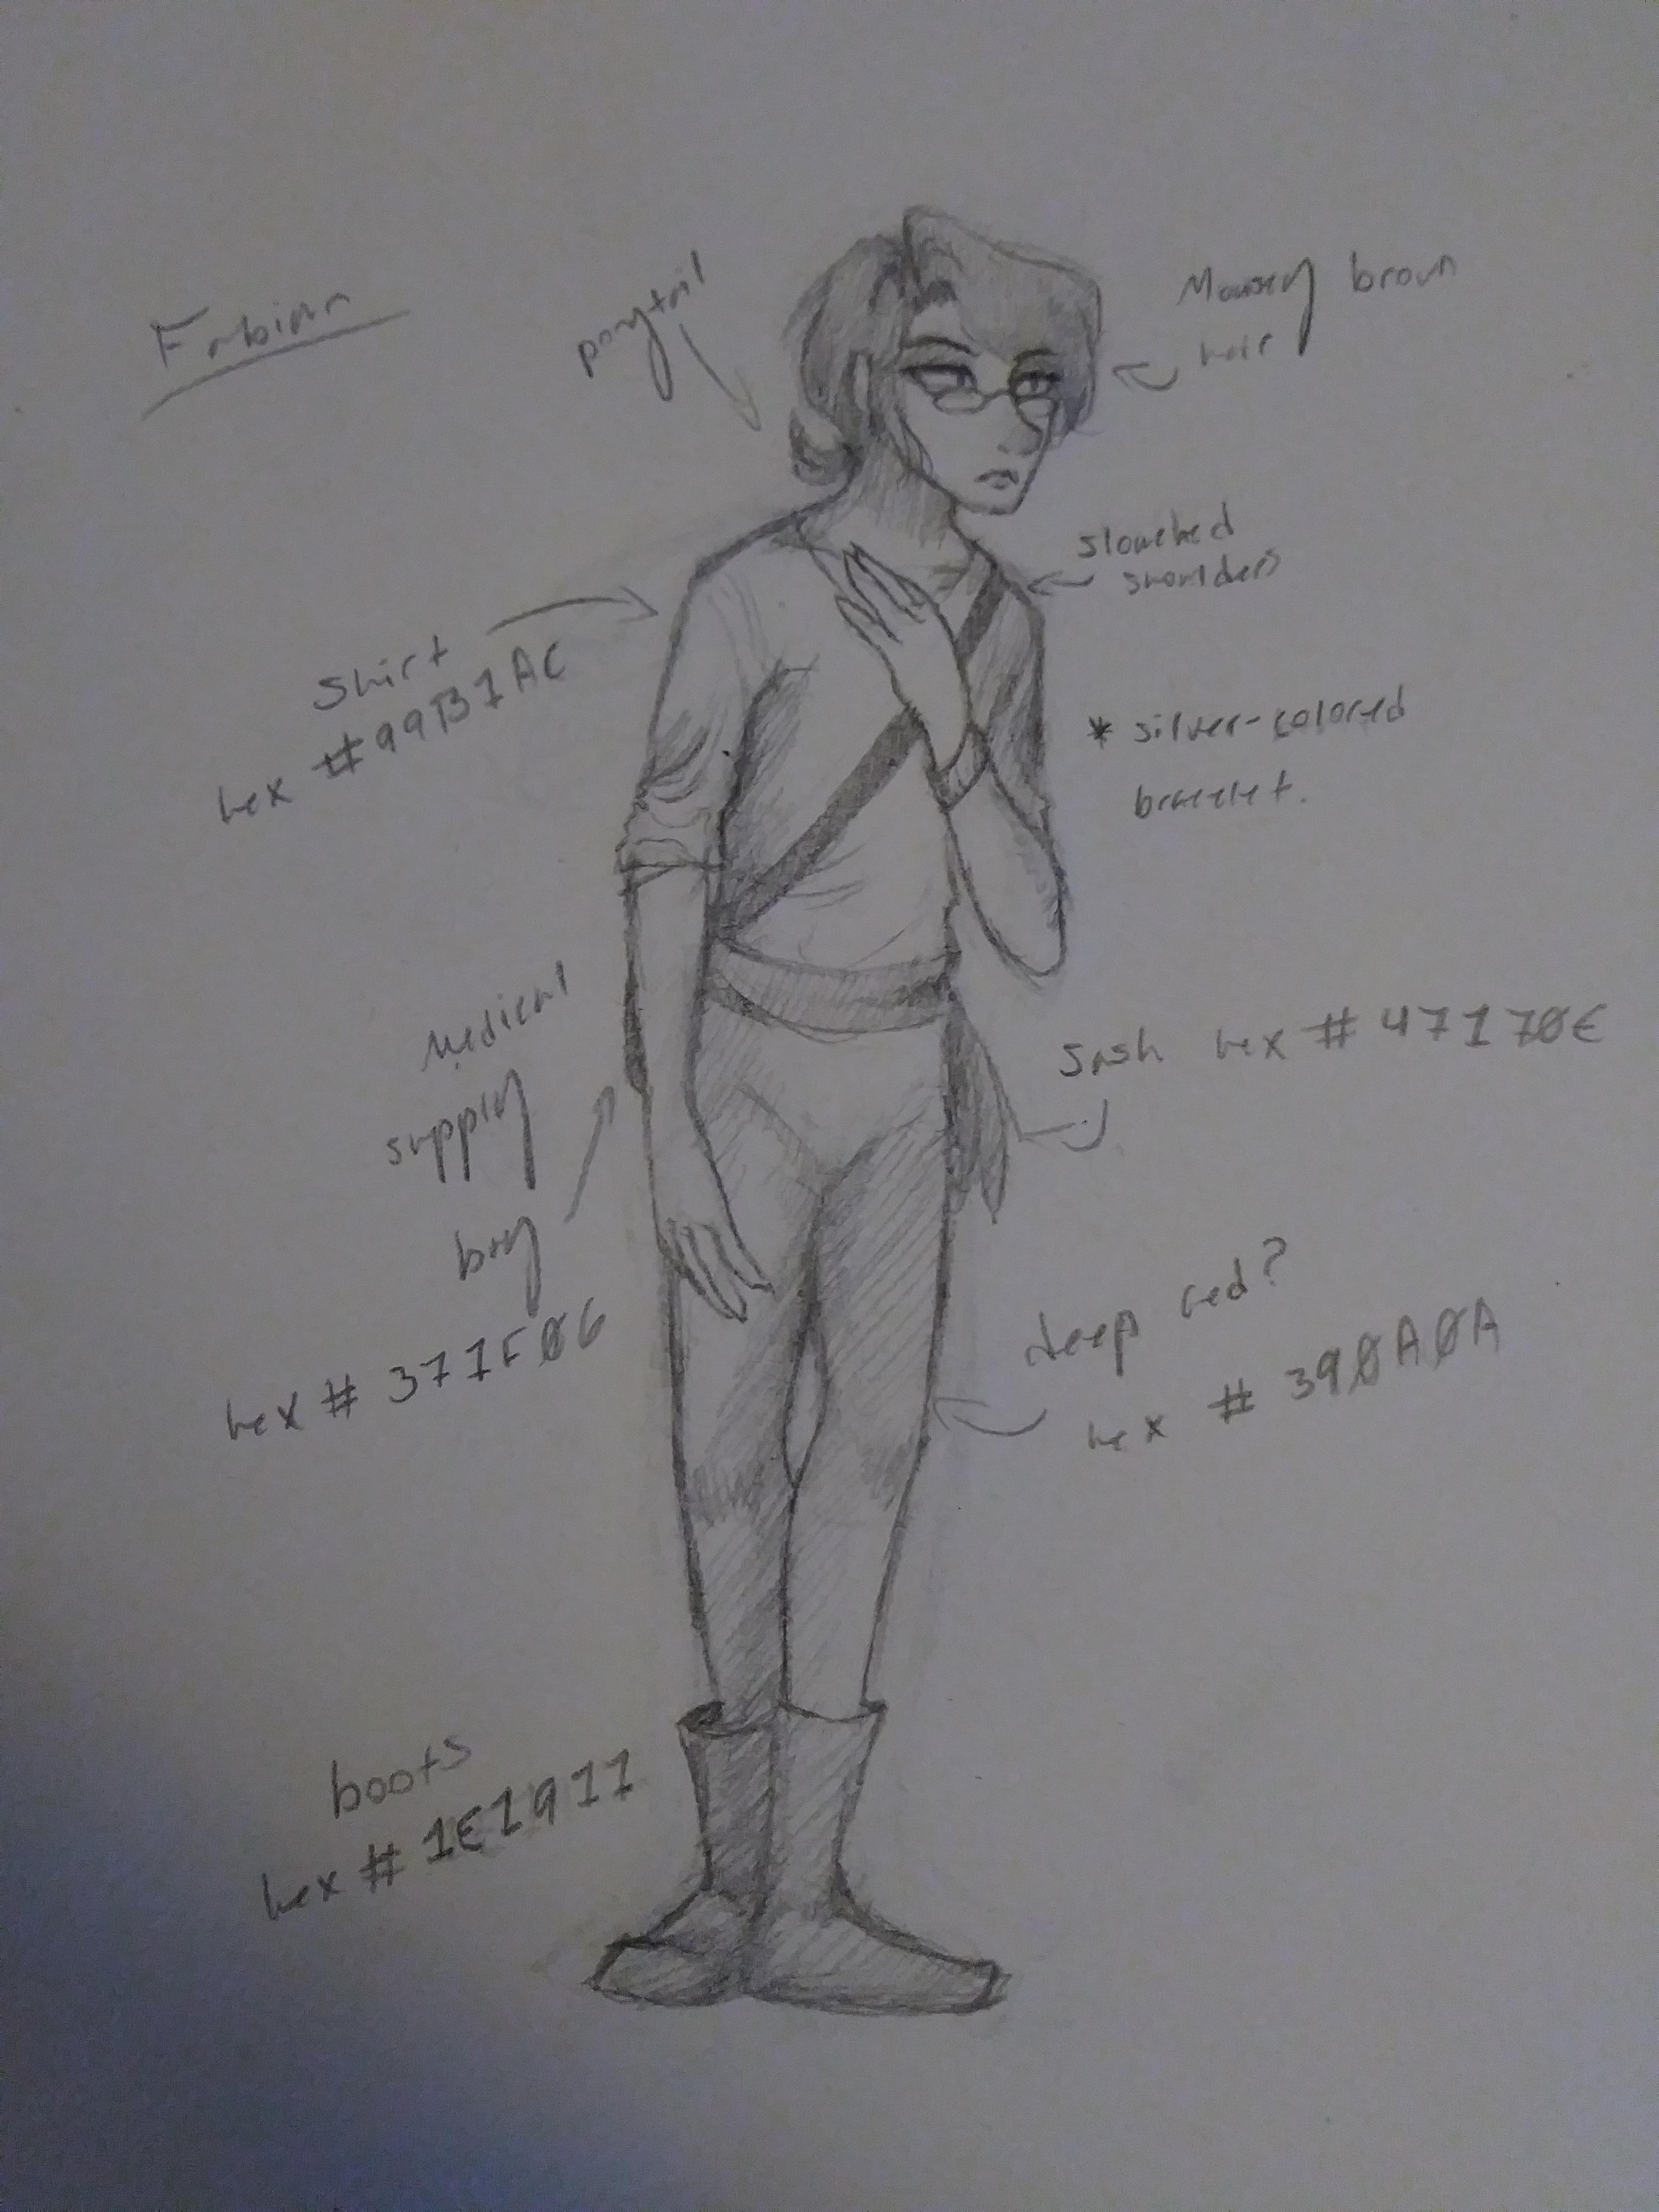 Fabian
ponytail
Mousey brown
hair
slouched
shoulders
shirt
hex #99B1AC
* silver-colored
bracelet.
Medical
supply
bag
hex # 371F06
Sash hex # 47170E
deep red?
hex # 390A0A
boots
hex # 1E1911